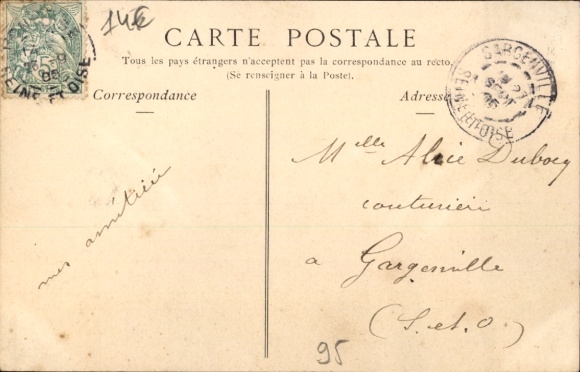 14€
CARTE POSTALE
Tous les pays étrangers n'acceptent pas la correspondance au recto.
(Se renseigner à la Poste).
Correspondance
Adresse
GARGENVILLE
SEINE-ET-OISE
SEINE-ET-OISE
mes amitiés
Melle Alice Dubocq
couturière
a Gargenville
(S. et. O.)
95